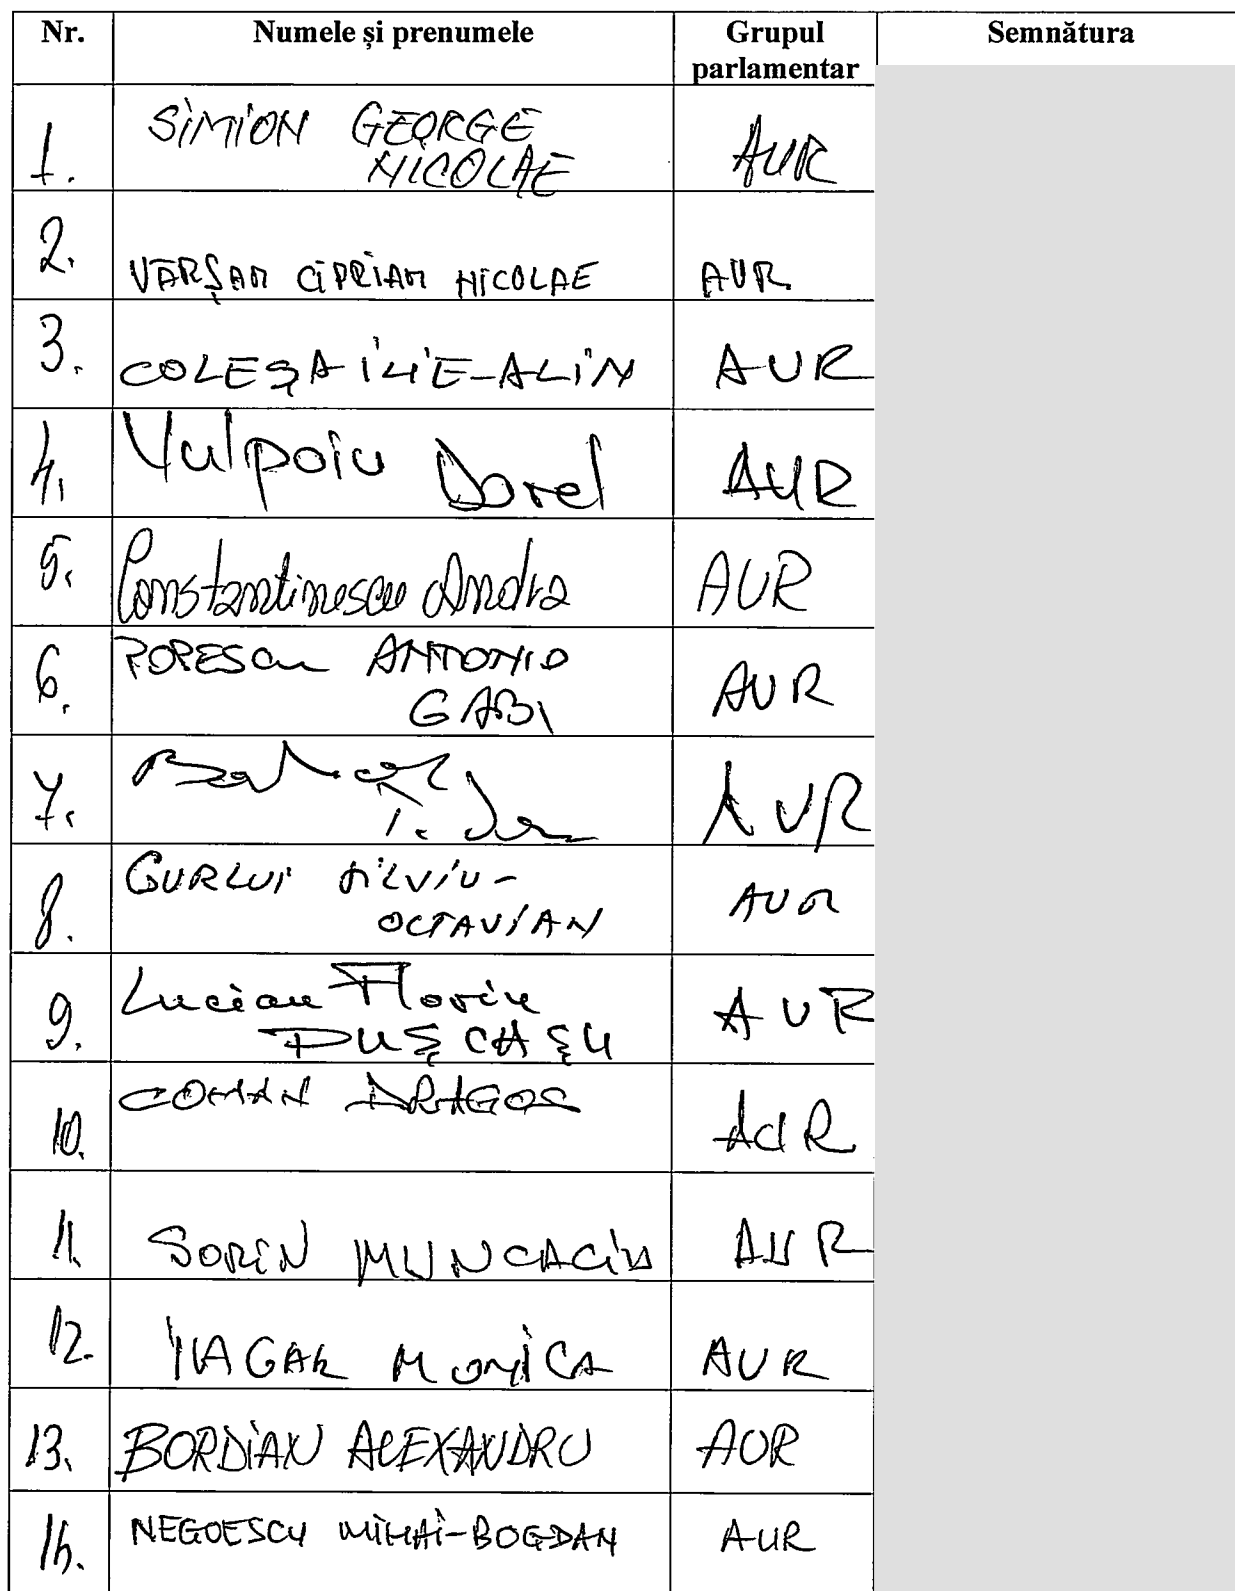 Nr. Numele și prenumele Grupul parlamentar Semnătura
1. SIMION GEORGE NICOLAE AUR
2. VARȘAN CIPRIAN NICOLAE AUR
3. COLEȘA ILIE-ALIN AUR
4. Vulpoiu Dorel AUR
5. Constantinescu Andra AUR
6. POPESCU ANTONIO GABI AUR
7. AUR
8. GURLUI SILVIU-OCTAVIAN AUR
9. Lucian Florin PUȘCAȘU AUR
10. COMAN DRAGOS AUR
11. SORIN MUNCACIU AUR
12. MONICA AUR
13. BORDIAN ALEXANDRU AUR
14. NEGOESCU MIHAI-BOGDAN AUR